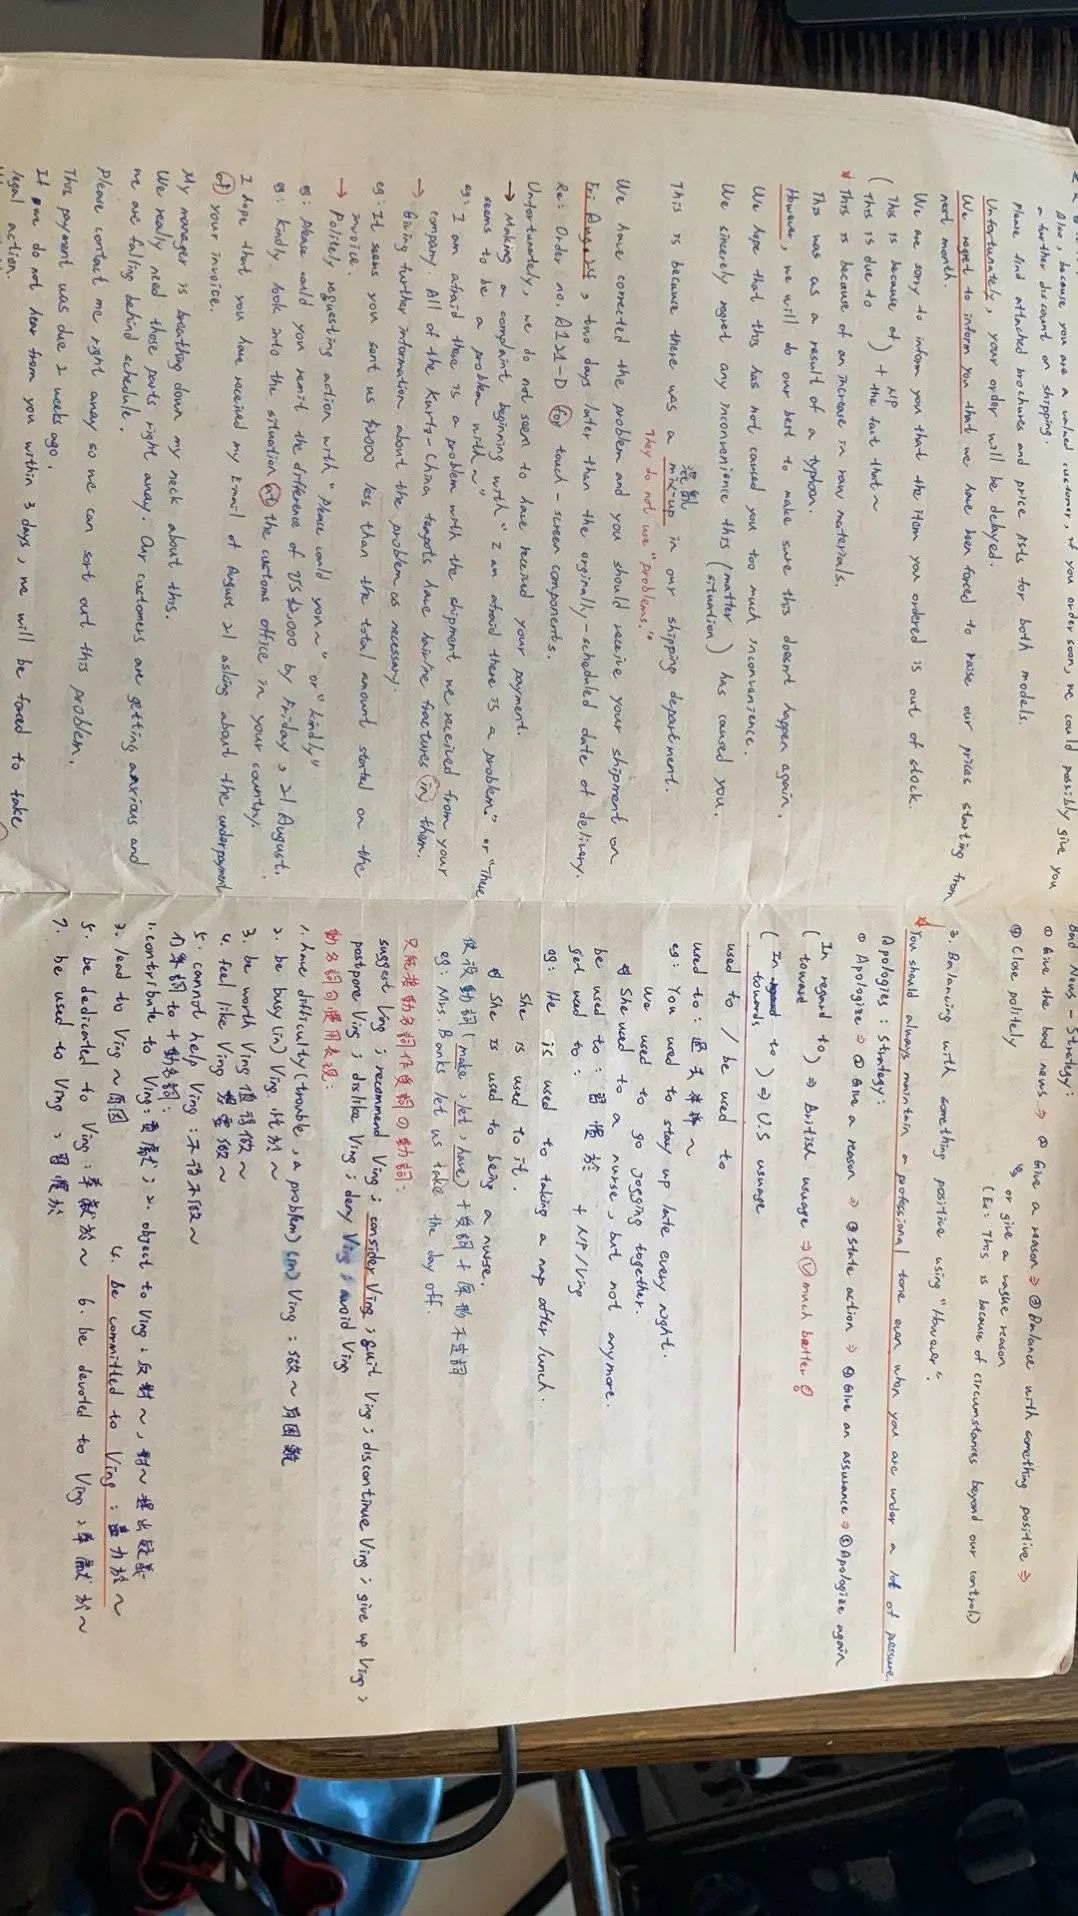 Also, because you are a valued customer, if you order soon, we could possibly give you
a further discount on shipping.
Please find attached brochures and price lists for both models.
Unfortunately, your order will be delayed.
We regret to inform you that we have been forced to raise our prices starting from
next month.
We are sorry to inform you that the item you ordered is out of stock.
( This is because of ) + NP
( This is due to ) + the fact that ~
This is because of an increase in raw materials.
This was as a result of a typhoon.
However, we will do our best to make sure this doesn't happen again.
We hope that this has not caused you too much inconvenience.
We sincerely regret any inconvenience this (matter) has caused you.
(situation)
混亂
This is because there was a mix-up in our shipping department.
They do not use "problems."
We have corrected the problem and you should receive your shipment on
Fri Aug. 24, two days later than the orginally-schedule date of delivery.
Re: Order no. A121-D for touch-screen components.
Unfortunately, we do not seem to have received your payment.
→ Making a complaint beginning with "I am afraid there is a problem." or "There
seems to be a problem with ~"
eg: I am afraid there is a problem with the shipment we received from your
company All of the Kurtz-China teapots have hairline fractures in them.
→ Giving further information about the problem as necessary.
eg: It seems you sent us $2000 less than the total amount stated on the
invoice.
→ Politely requesting action with "Please could you ~" or "kindly"
eg: Please could you remit the difference of US$2,000 by Friday, 21 August.
eg: Kindly look into the situation at the customs office in your country.
I hope that you have received my Email of August 21 asking about the underpayment
of your invoice.
My manager is breathing down my neck about this.
We really need those parts right away. Our customers are getting anxious and
we are falling behind schedule.
Please contact me right away so we can sort out this problem.
This payment was due 2 weeks ago.
If we do not hear from you within 3 days, we will be forced to take
legal action.
Bad News - Strategy:
① Give the bad news ⇒ ② Give a reason ⇒ ③ Balance with something positive ⇒
or give a vague reason
④ Close politely
(Ex: This is because of circumstances beyond our control)
3. Balancing with something positive using "However".
You should always maintain a professional tone even when you are under a lot of pressure.
Apologies: Strategy:
① Apologize ⇒ ② Give a reason ⇒ ③ State action ⇒ ④ Give an assurance ⇒ ⑤ Apologize again
( In regard to ) ⇒ British usage ⇒ much better
toward
( In to ) ⇒ U.S usuage
towards
used to / be used to
used to: 過去
eg: You used to stay up late every night.
We used to go jogging together.
She used to a nurse, but not anymore.
be used to: 習慣於 + NP/Ving
get used to:
eg: He is used to taking a nap after lunch.
She is used to it.
She is used to being a nurse.
使役動詞 (make, let, have) + 受詞 + 原形不定詞
eg: Mrs. Banks let us take the day off.
只能接動名詞作受詞の動詞:
suggest Ving; recommend Ving; consider Ving; quit Ving; discontinue Ving; give up Ving;
postpone Ving; dislike Ving; deny Ving; avoid Ving
動名詞の慣用表現:
1. have difficulty (trouble, a problem) (in) Ving: 做~有困難
2. be busy (in) Ving: 忙於~
3. be worth Ving 值得做~
4. feel like Ving 想要做~
5. cannot help Ving: 不得不做~
介系詞 to + 動名詞:
1. contribute to Ving: 貢獻; 2. object to Ving: 反對~, 對~提出
3. lead to Ving ~ 4. be committed to Ving: 盡力於~
5. be dedicated to Ving: 奉獻於~ 6. be devoted to Ving: 奉獻於~
7. be used to Ving: 習慣於